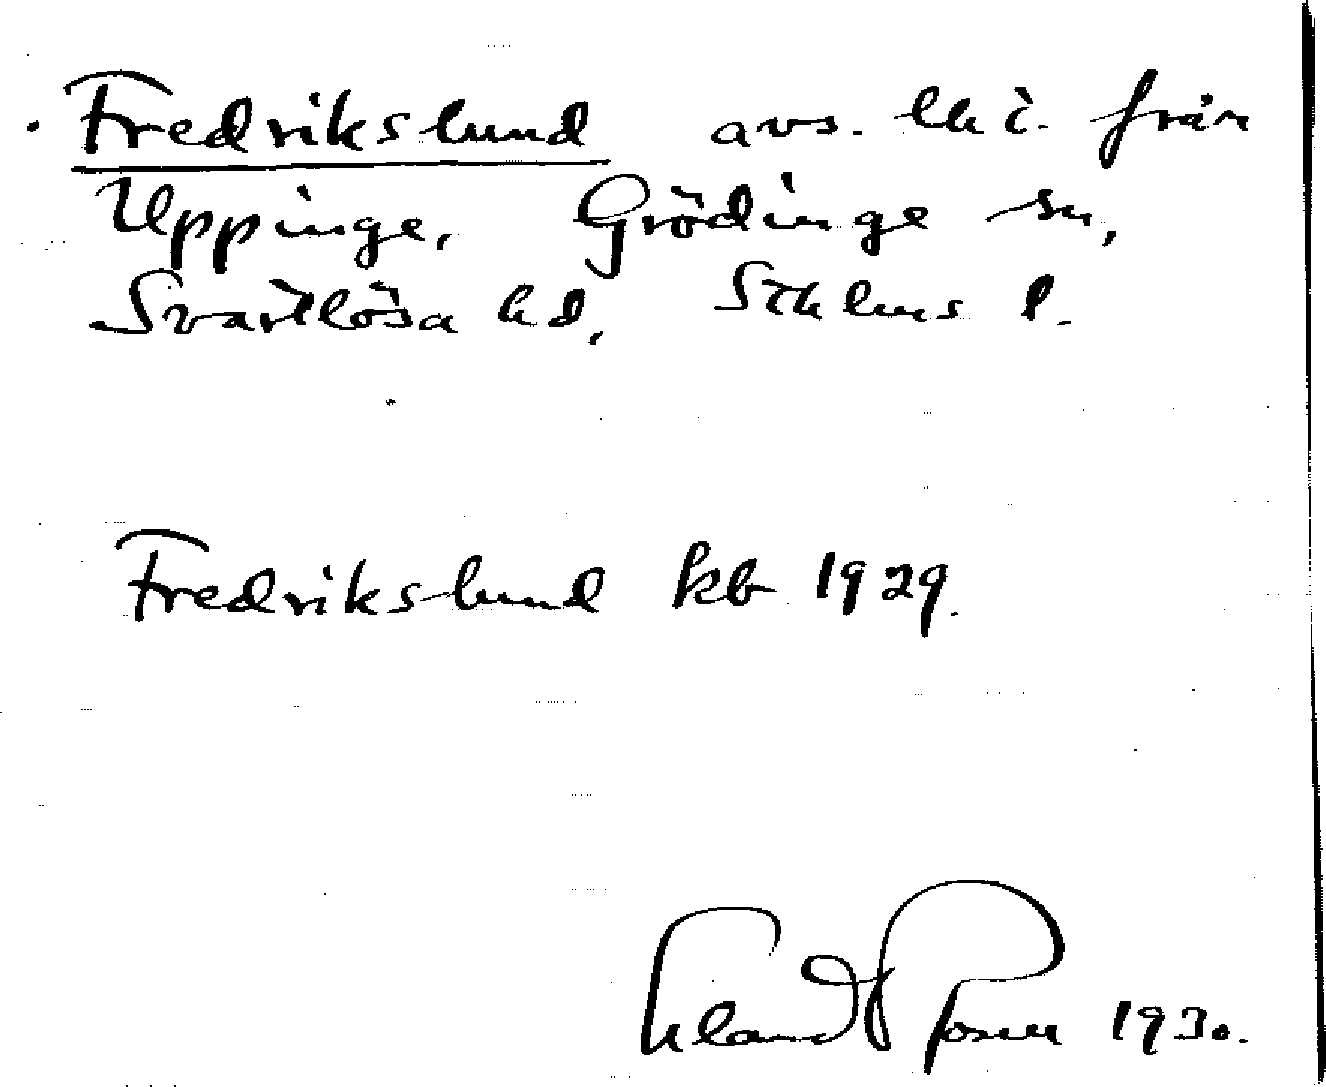 Fredrikslund avs. lht. från
Uppinge, Grödinge sn,
Svartlösa hd, Sthlms l.
Fredrikslund kb 1929.
Rosen 1930.